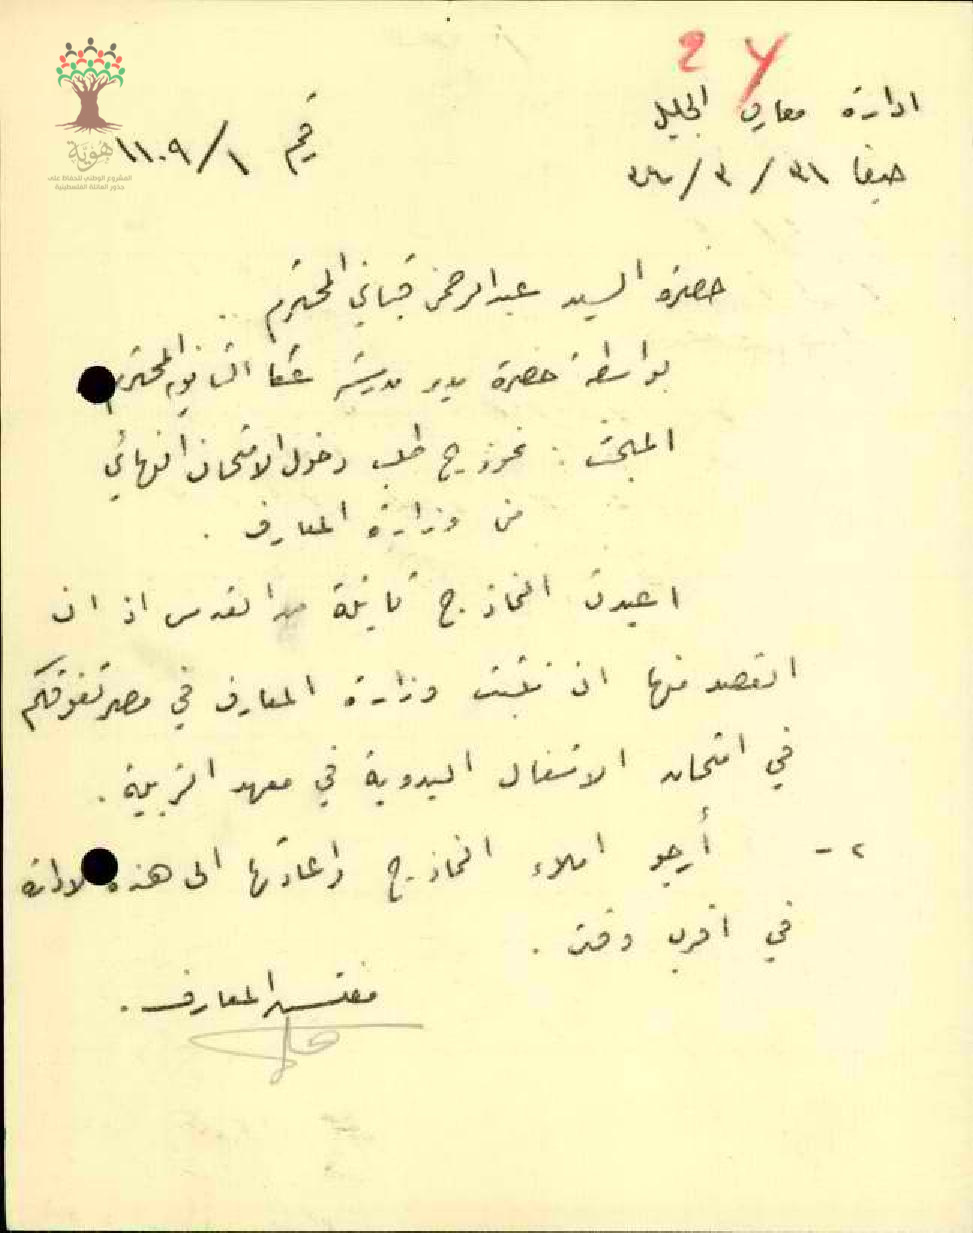 2 y
ادارة معارف الجليل
حيفا ٣١ / ٣ /
رقم ١ / ١١٠٩
هوية
المشروع الوطني للحفاظ على
جذور العائلة الفلسطينية
حضرة السيد عبد الرحمن قباني المحترم .
بواسطة حضرة مدير مدرسة عكا الثانوية المحترم
المبحث : نموذج طلب دخول الامتحان النهائي
من وزارة المعارف .
اعيدت النماذج ثانية من القدس اذ ان
القصد منها ان تثبت وزارة المعارف في مصر تفوقكم
في امتحان الاشغال اليدوية في معهد التربية .
٢ - أرجو املاء النماذج واعادتها الى هذه الادارة
في اقرب وقت .
مفتش المعارف .